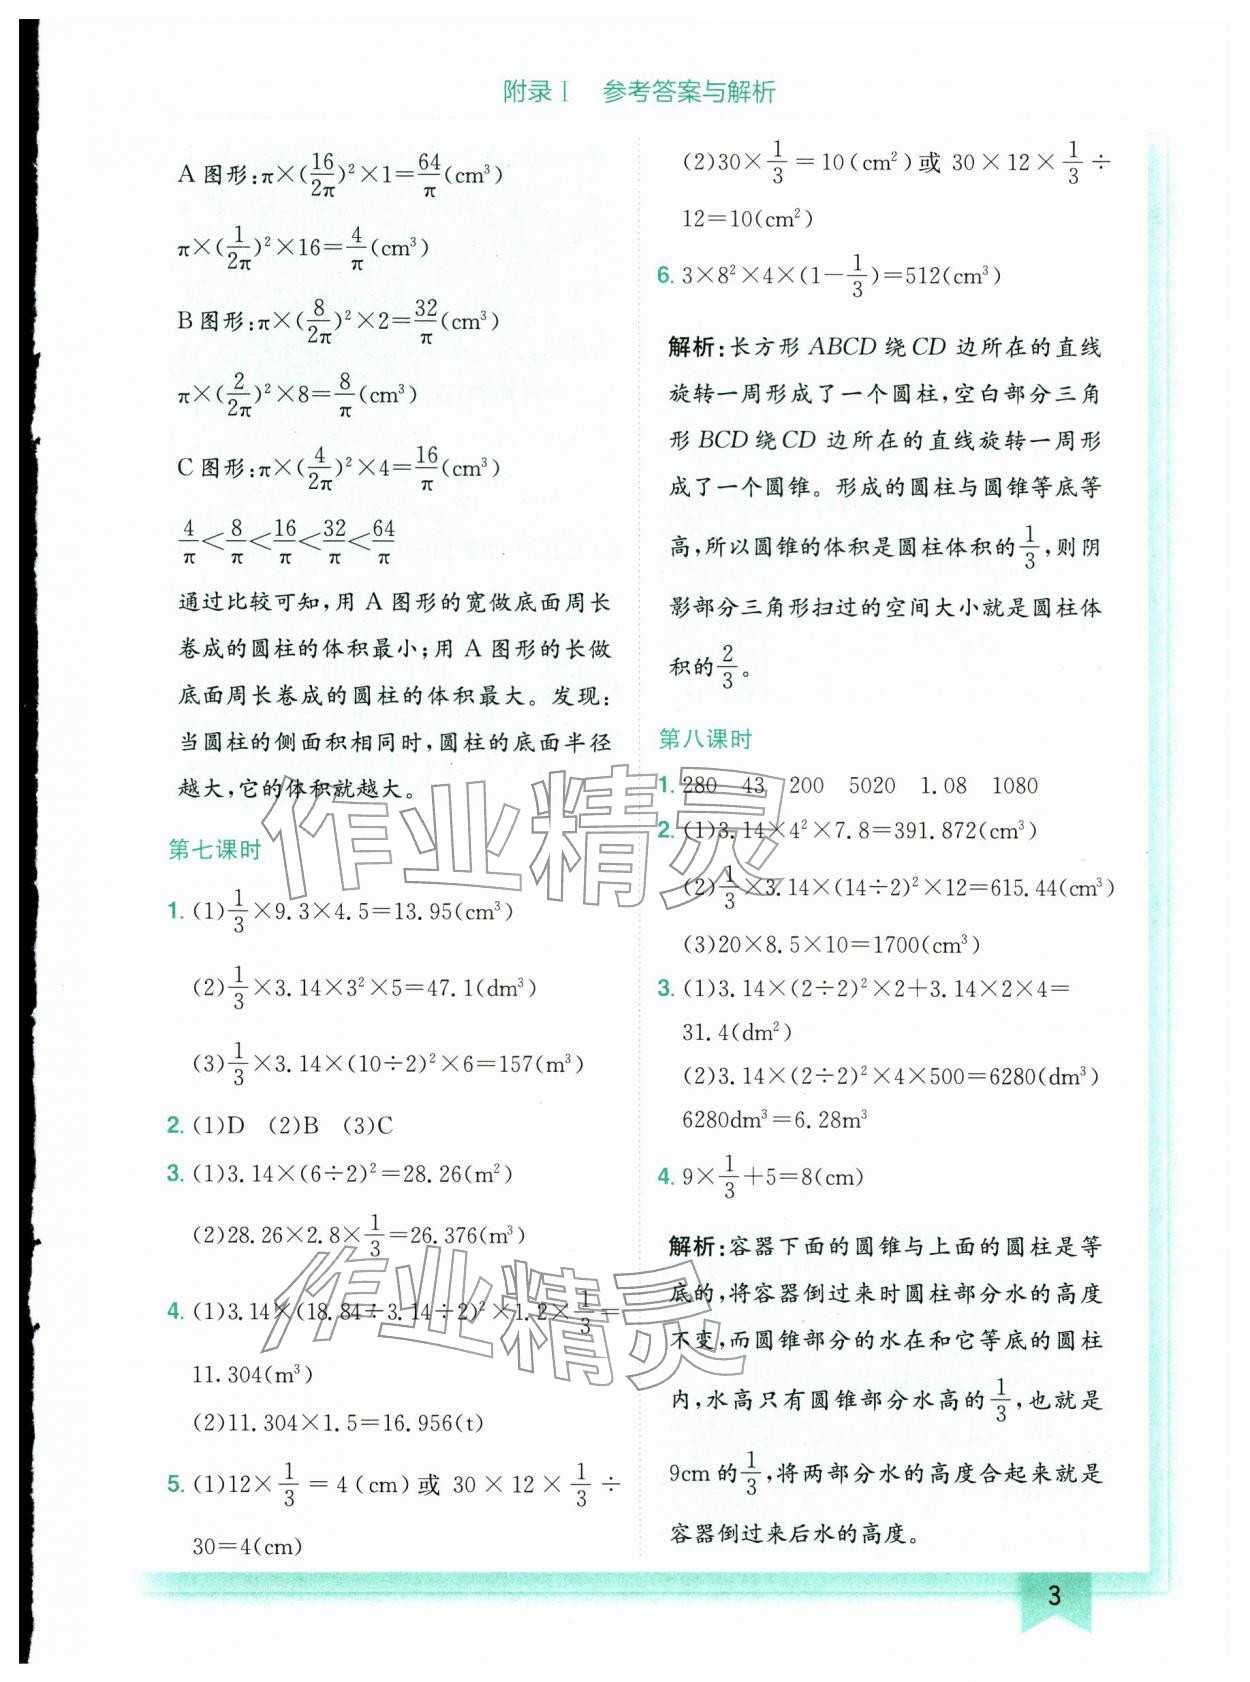 附录Ⅰ 参考答案与解析
A图形:π×(16/2π)²×1=64/π(cm³)
π×(1/2π)²×16=4/π(cm³)
B图形:π×(8/2π)²×2=32/π(cm³)
π×(2/2π)²×8=8/π(cm³)
C图形:π×(4/2π)²×4=16/π(cm³)
4/π<8/π<16/π<32/π<64/π
通过比较可知,用A图形的宽做底面周长
卷成的圆柱的体积最小;用A图形的长做
底面周长卷成的圆柱的体积最大。发现:
当圆柱的侧面积相同时,圆柱的底面半径
越大,它的体积就越大。
第七课时
1. (1)1/3×9.3×4.5=13.95(cm³)
(2)1/3×3.14×3²×5=47.1(dm³)
(3)1/3×3.14×(10÷2)²×6=157(m³)
2. (1)D (2)B (3)C
3. (1)3.14×(6÷2)²=28.26(m²)
(2)28.26×2.8×1/3=26.376(m³)
4. (1)3.14×(18.84÷3.14÷2)²×1.2×1/3=
11.304(m³)
(2)11.304×1.5=16.956(t)
5. (1)12×1/3=4(cm)或 30×12×1/3÷
30=4(cm)
(2)30×1/3=10(cm²)或 30×12×1/3÷
12=10(cm²)
6. 3×8²×4×(1-1/3)=512(cm³)
解析:长方形ABCD绕CD边所在的直线
旋转一周形成了一个圆柱,空白部分三角
形BCD绕CD边所在的直线旋转一周形
成了一个圆锥。形成的圆柱与圆锥等底等
高,所以圆锥的体积是圆柱体积的1/3,则阴
影部分三角形扫过的空间大小就是圆柱体
积的2/3。
第八课时
1. 280 43 200 5020 1.08 1080
2. (1)3.14×4²×7.8=391.872(cm³)
(2)1/3×3.14×(14÷2)²×12=615.44(cm³)
(3)20×8.5×10=1700(cm³)
3. (1)3.14×(2÷2)²×2+3.14×2×4=
31.4(dm²)
(2)3.14×(2÷2)²×4×500=6280(dm³)
6280dm³=6.28m³
4. 9×1/3+5=8(cm)
解析:容器下面的圆锥与上面的圆柱是等
底的,将容器倒过来时圆柱部分水的高度
不变,而圆锥部分的水在和它等底的圆柱
内,水高只有圆锥部分水高的1/3,也就是
9cm的1/3,将两部分水的高度合起来就是
容器倒过来后水的高度。
3
作业精灵
作业精灵